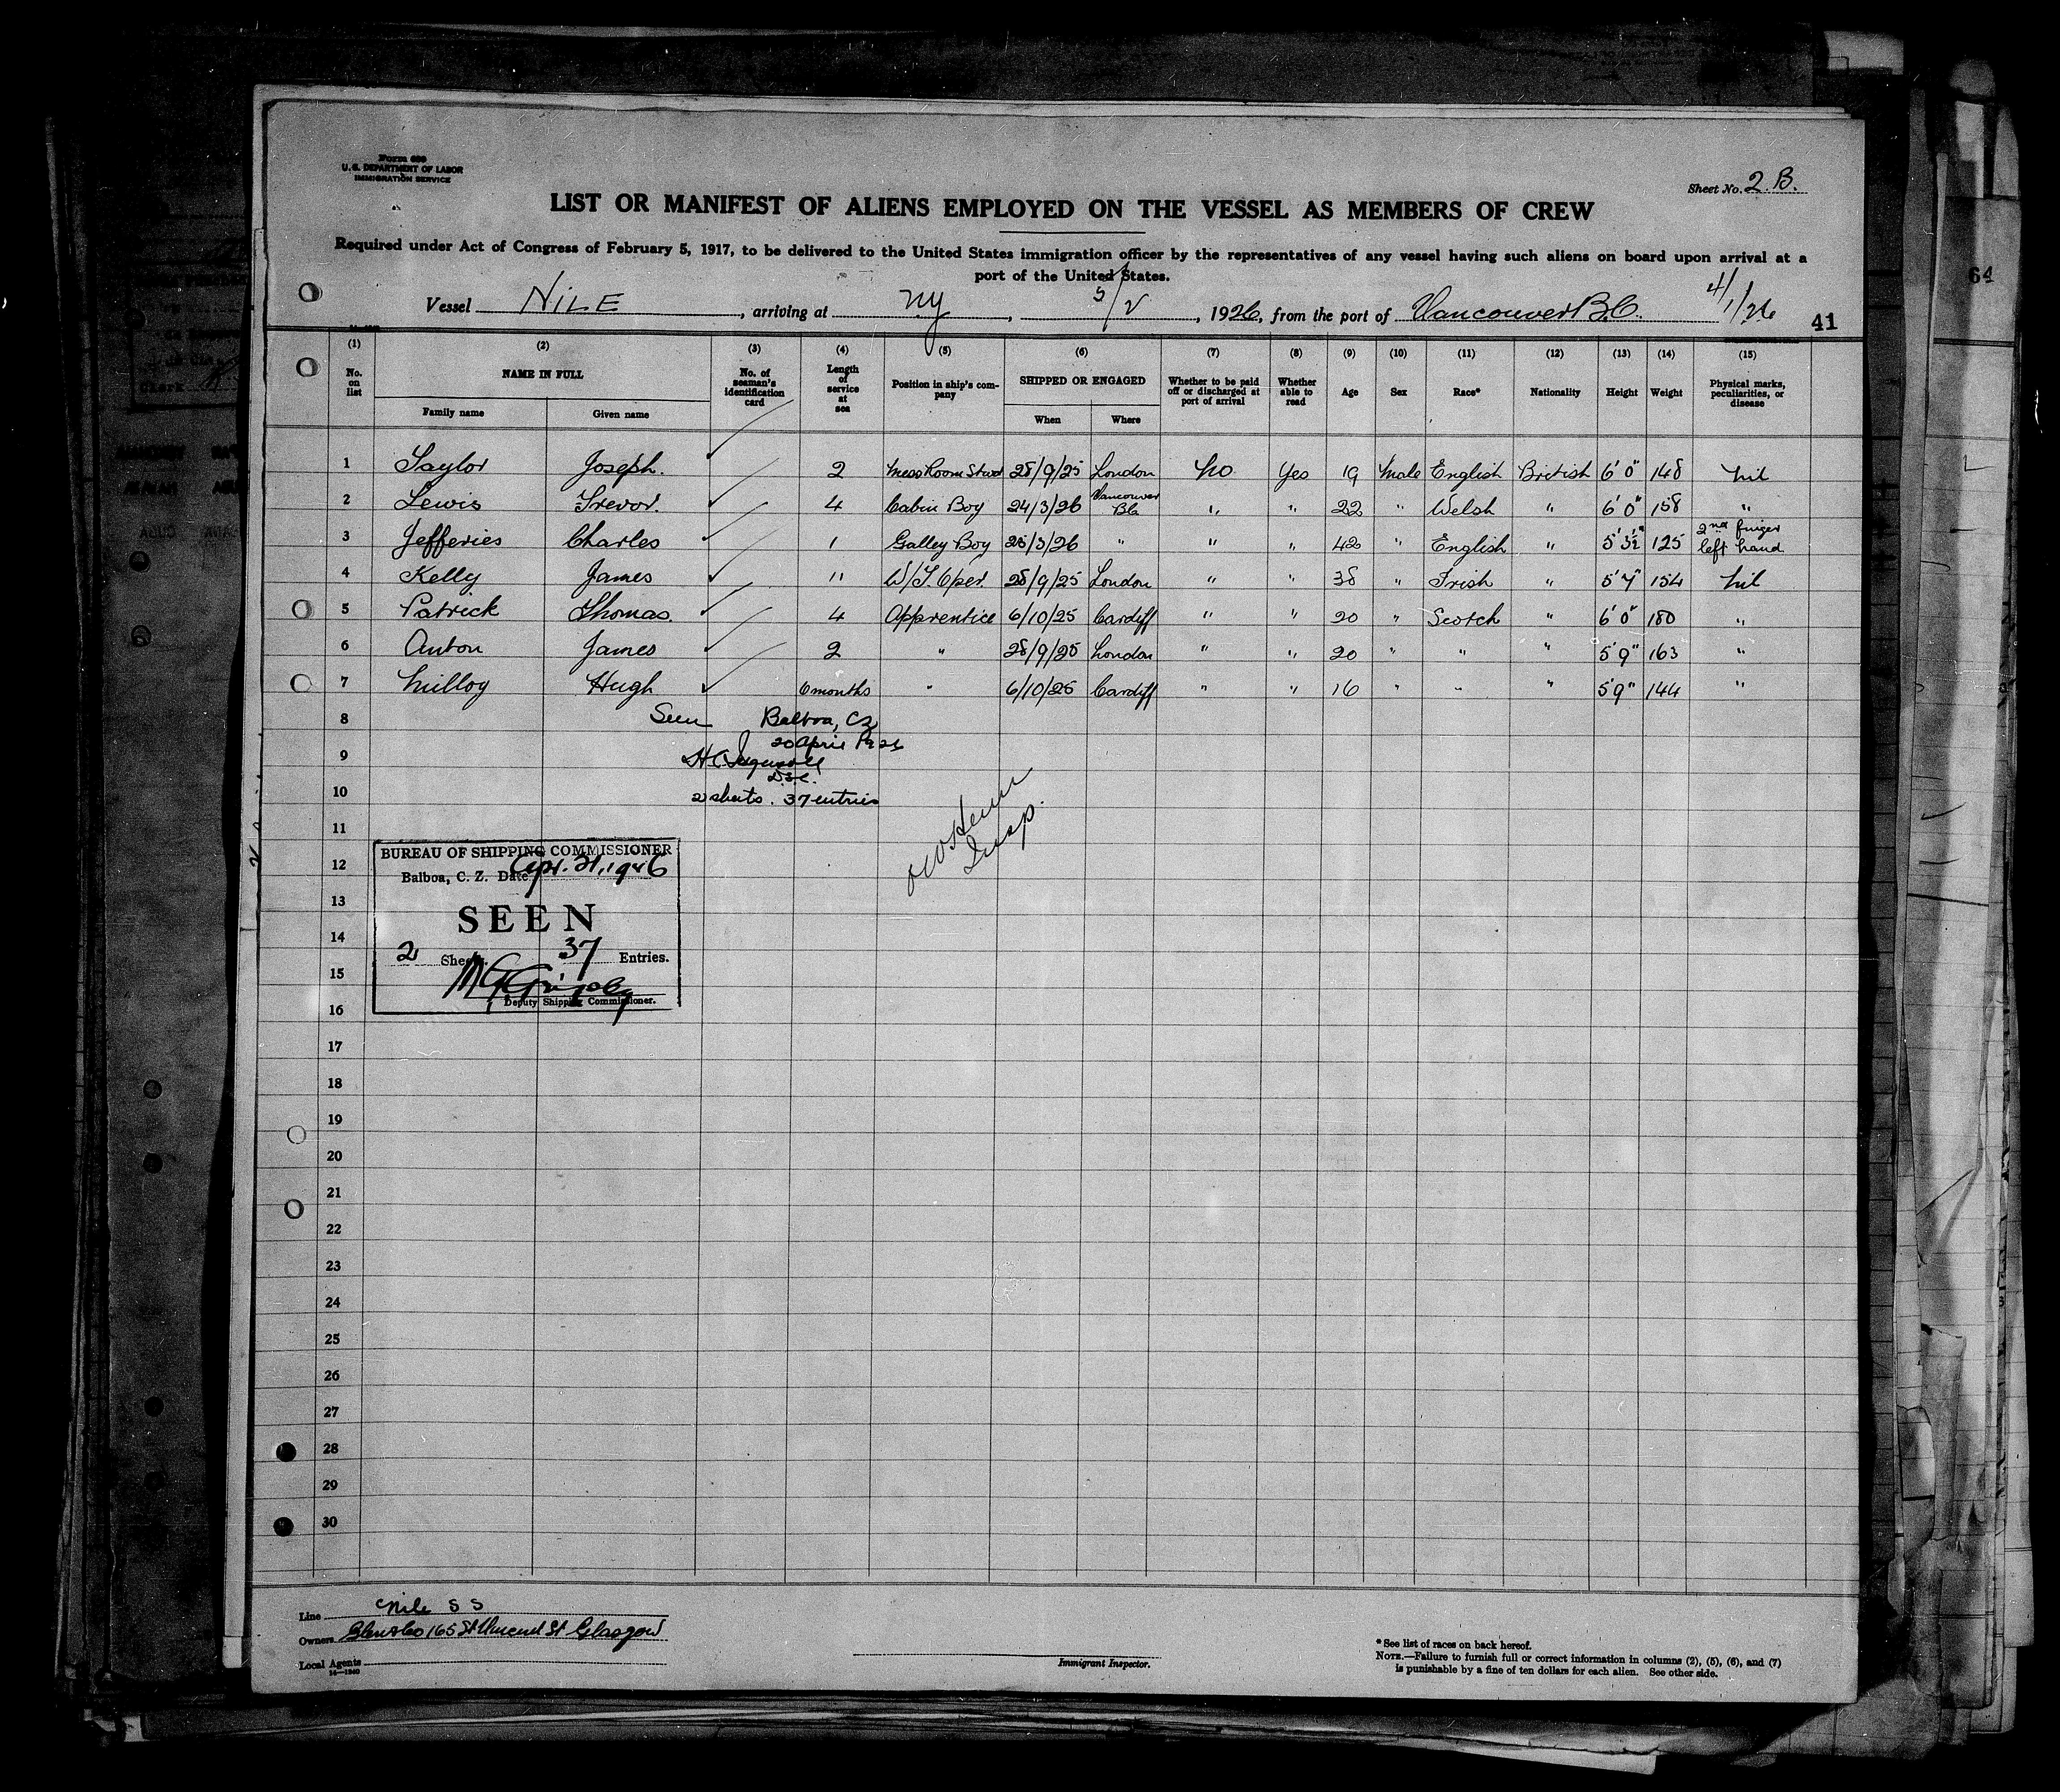 Form 689
U. S. DEPARTMENT OF LABOR
IMMIGRATION SERVICE
Sheet No. 2.B.
LIST OR MANIFEST OF ALIENS EMPLOYED ON THE VESSEL AS MEMBERS OF CREW
Required under Act of Congress of February 5, 1917, to be delivered to the United States immigration officer by the representatives of any vessel having such aliens on board upon arrival at a
port of the United States.
Vessel NILE, arriving at NY, 5/2, 1926, from the port of Vancouver B.C. 4/1/26
41
64
(1) (2) (3) (4) (5) (6) (7) (8) (9) (10) (11) (12) (13) (14) (15)
No. on list NAME IN FULL No. of seaman's identification card Length of service at sea Position in ship's company SHIPPED OR ENGAGED Whether to be paid off or discharged at port of arrival Whether able to read Age Sex Race* Nationality Height Weight Physical marks, peculiarities, or disease
Family name Given name When Where
1 Taylor Joseph. 2 Mess Room Stwd 28/9/25 London No Yes 19 Male English British 6' 0" 148 Nil
2 Lewis Trevor. 4 Cabin Boy 24/3/26 Vancouver BC " " 22 " Welsh " 6' 0" 158 "
3 Jefferies Charles 1 Galley Boy 26/3/26 " " " 42 " English " 5' 3½" 125 2nd finger left hand
4 Kelly James 11 W/T. Oper. 28/9/25 London " " 38 " Irish " 5' 7" 154 Nil
5 Patrick Thomas. 4 Apprentice 6/10/25 Cardiff " " 20 " Scotch " 6' 0" 180 "
6 Anton James 2 " 28/9/25 London " " 20 " " " 5' 9" 163 "
7 Milloy Hugh 6 months " 6/10/25 Cardiff " " 16 " " " 5' 9" 144 "
8 Seen Balboa, CZ
20 April 1926
9
10 2 sheets. 37 entries
11
Insp.
BUREAU OF SHIPPING COMMISSIONER
12 Balboa, C. Z. Date Apr. 21, 1926
13 SEEN
14 2 Sheets. 37 Entries.
15
Deputy Shipping Commissioner.
16
17
18
19
20
21
22
23
24
25
26
27
28
29
30
Line Nile S S
Owners 165 St Vincent St Glasgow
Local Agents
14—1240
Immigrant Inspector.
* See list of races on back hereof.
NOTE.—Failure to furnish full or correct information in columns (2), (5), (6), and (7)
is punishable by a fine of ten dollars for each alien. See other side.